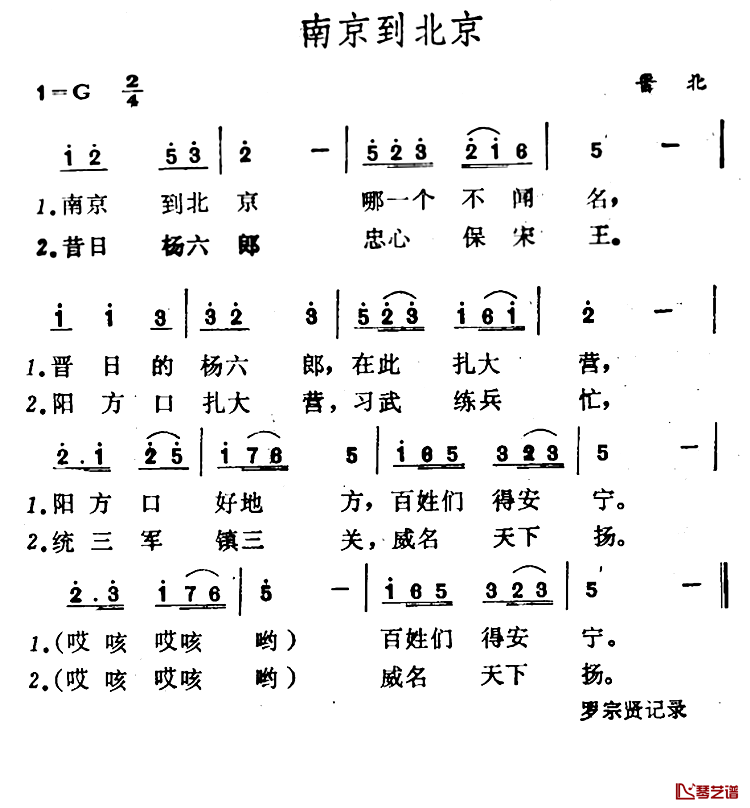 南京到北京
1=G 2/4 晋北
1̇ 2̇ 5̇ 3̇ | 2̇ — | 5̇ 2̇ 3̇ 2̇ 1̇ 6 | 5 — |
1.南京 到北 京 哪一个 不闻 名，
2.昔日 杨六 郎 忠心 保宋 王。
1̇ 1̇ 3 | 3̇ 2̇ 3̇ | 5̇ 2̇ 3̇ 1̇ 6 1̇ | 2̇ — |
1.晋日的杨六 郎，在此 扎大 营，
2.阳方口扎大 营，习武 练兵 忙，
2̇ . 1̇ 2̇ 5̇ | 1̇ 7 6 5 | 1̇ 6 5 3 2 3 | 5 — |
1.阳方口 好地 方，百姓们 得安 宁。
2.统三军 镇三 关，威名 天下 扬。
2̇ . 3̇ 1̇ 7 6 | 5̇ — | 1̇ 6 5 3 2 3 | 5 — ‖
1.(哎咳 哎咳 哟) 百姓们 得安 宁。
2.(哎咳 哎咳 哟) 威名 天下 扬。
罗宗贤记录
琴艺谱